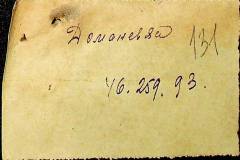 Доманевка 131
46. 259. 93.